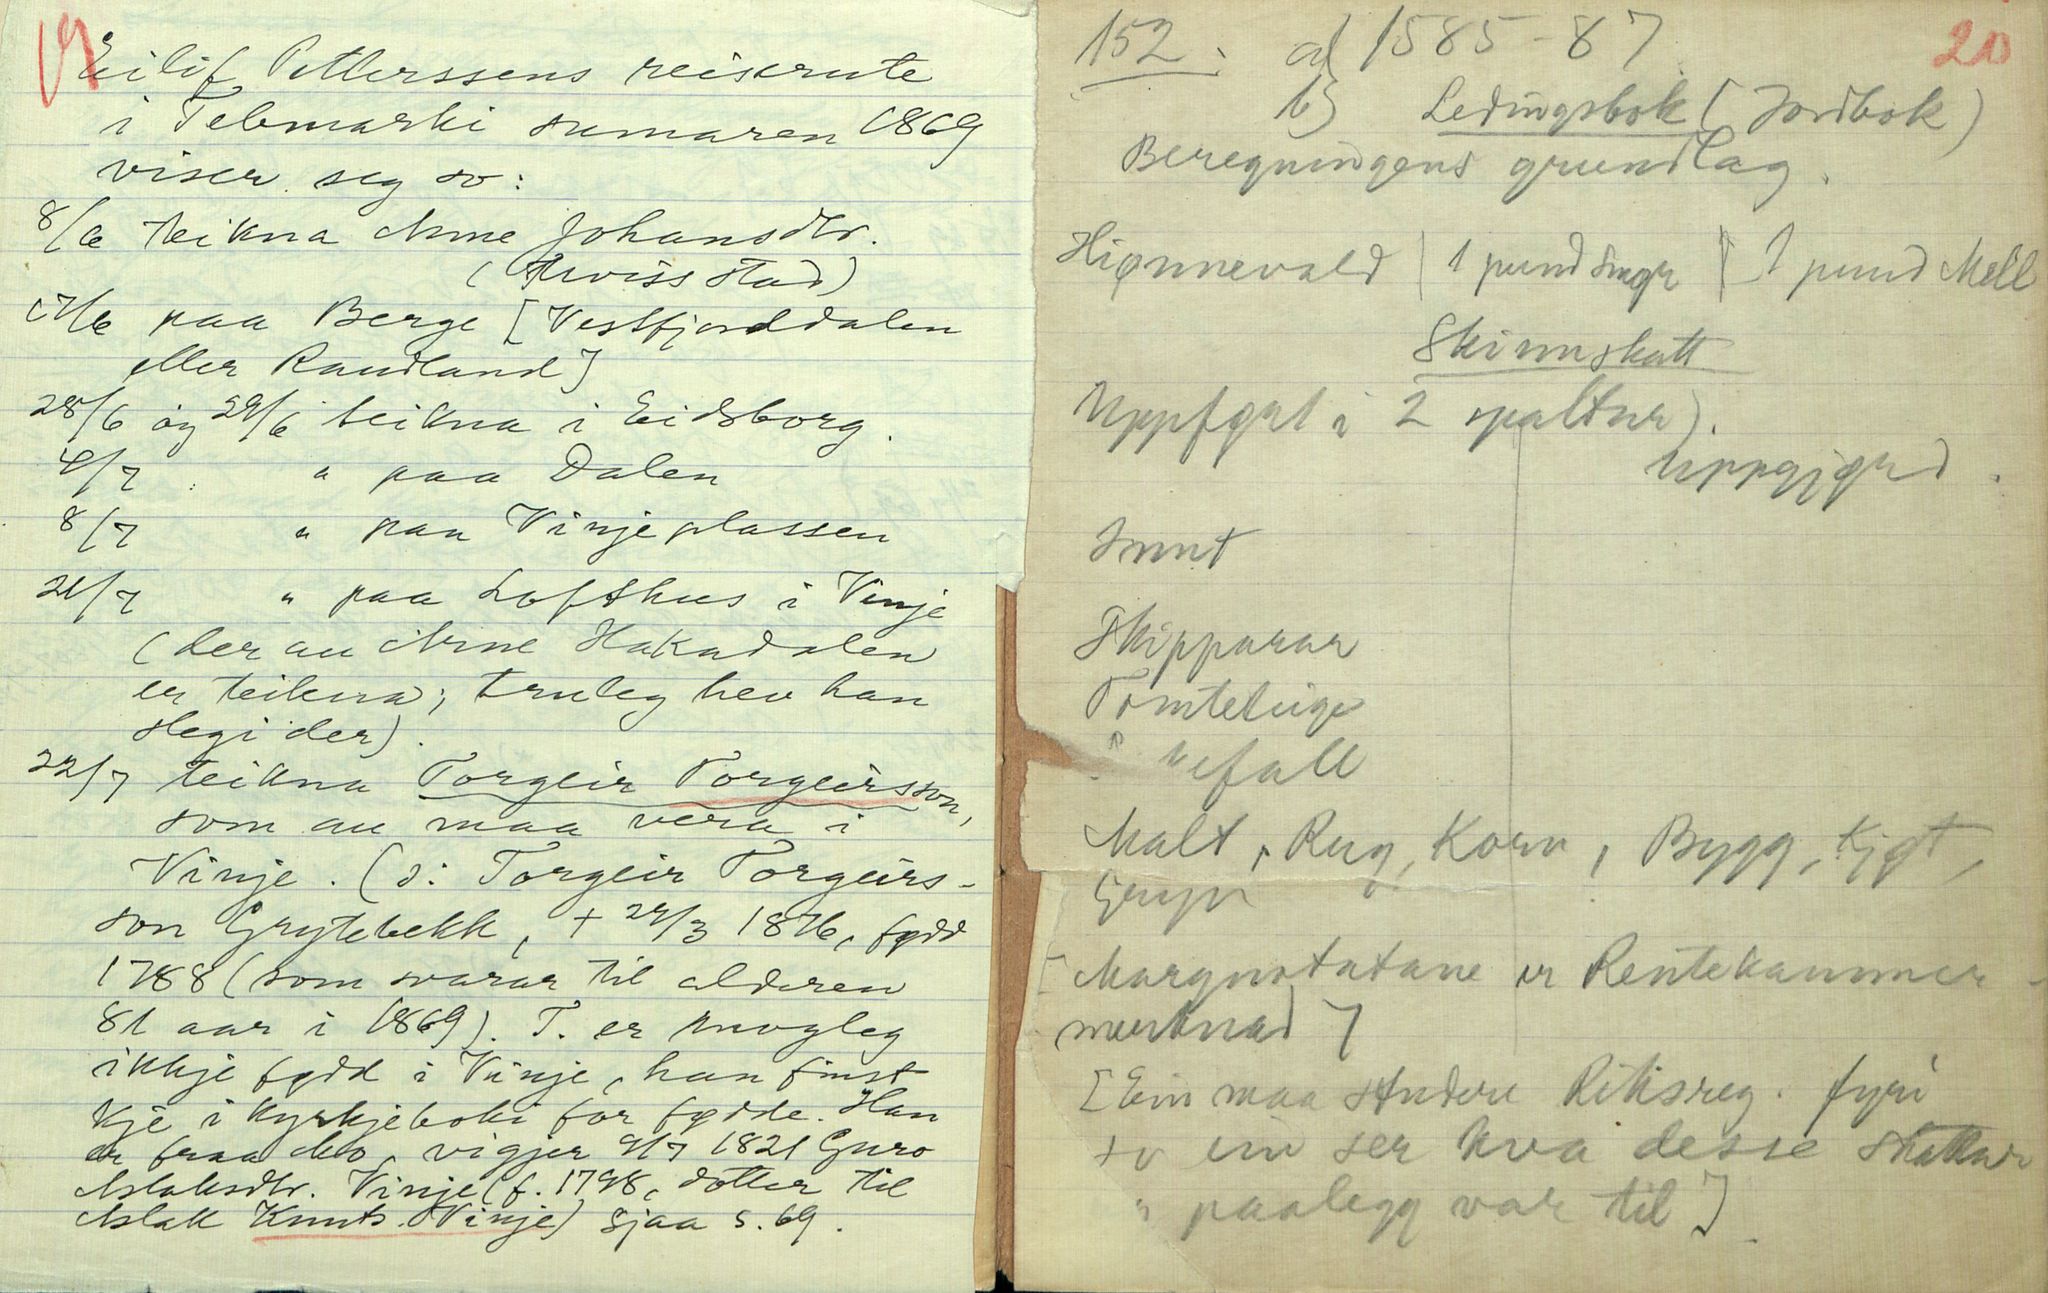 19
Eilif Petterssens reiserute
i Telemarki sumaren 1869
viser seg so:
8/6 teikna Anne Johansdtr.
(Uviss stad)
17/6 paa Berge [Vestfjorddalen
eller Raudland]
28/6 og 29/6 teikna i Eidsborg.
4/7 " paa Dalen
8/7 " paa Vinjeplassen
21/7 " paa Lofthus i Vinje
(der au Arne Hakadalen
er teikna; truleg hev han
slegi der).
22/7 teikna Torgeir Torgeirsson,
som au maa vera i
Vinje. (ɔ: Torgeir Torgeirs-
son Grytebekk, + 29/3 1876, fødd
1788 (som svarar til alderen
81 aar i 1869). T. er mogleg
ikkje fødd i Vinje, han finst
kje i kyrkjeboki for fødde. Han
er fraa Mo, vigjer 9/7 1821 Guro
Aslaksdtr. Vinje (f. 1798, dotter til
Aslak Knuts. Vinje) Sjaa s. 69.
20
152. a) 1585-87
b) Ledingsbok (Jordbok)
Beregningens grundlag.
Hiønnevald | 1 pund Smør | 1 pund Mell
Skinnskatt
Uppført i 2 spaltur).
Uppgjord.
Innt
Skipparar
Tomteleige
" vefall
Malt, Rug, Korn, Bygg, Kjøt,
Gryn
[Margnotatane er Rentekammer-
merknad]
[Ein maa studere Riksreg. fyri
so ein ser kva desse skattar
" paalegg var til]